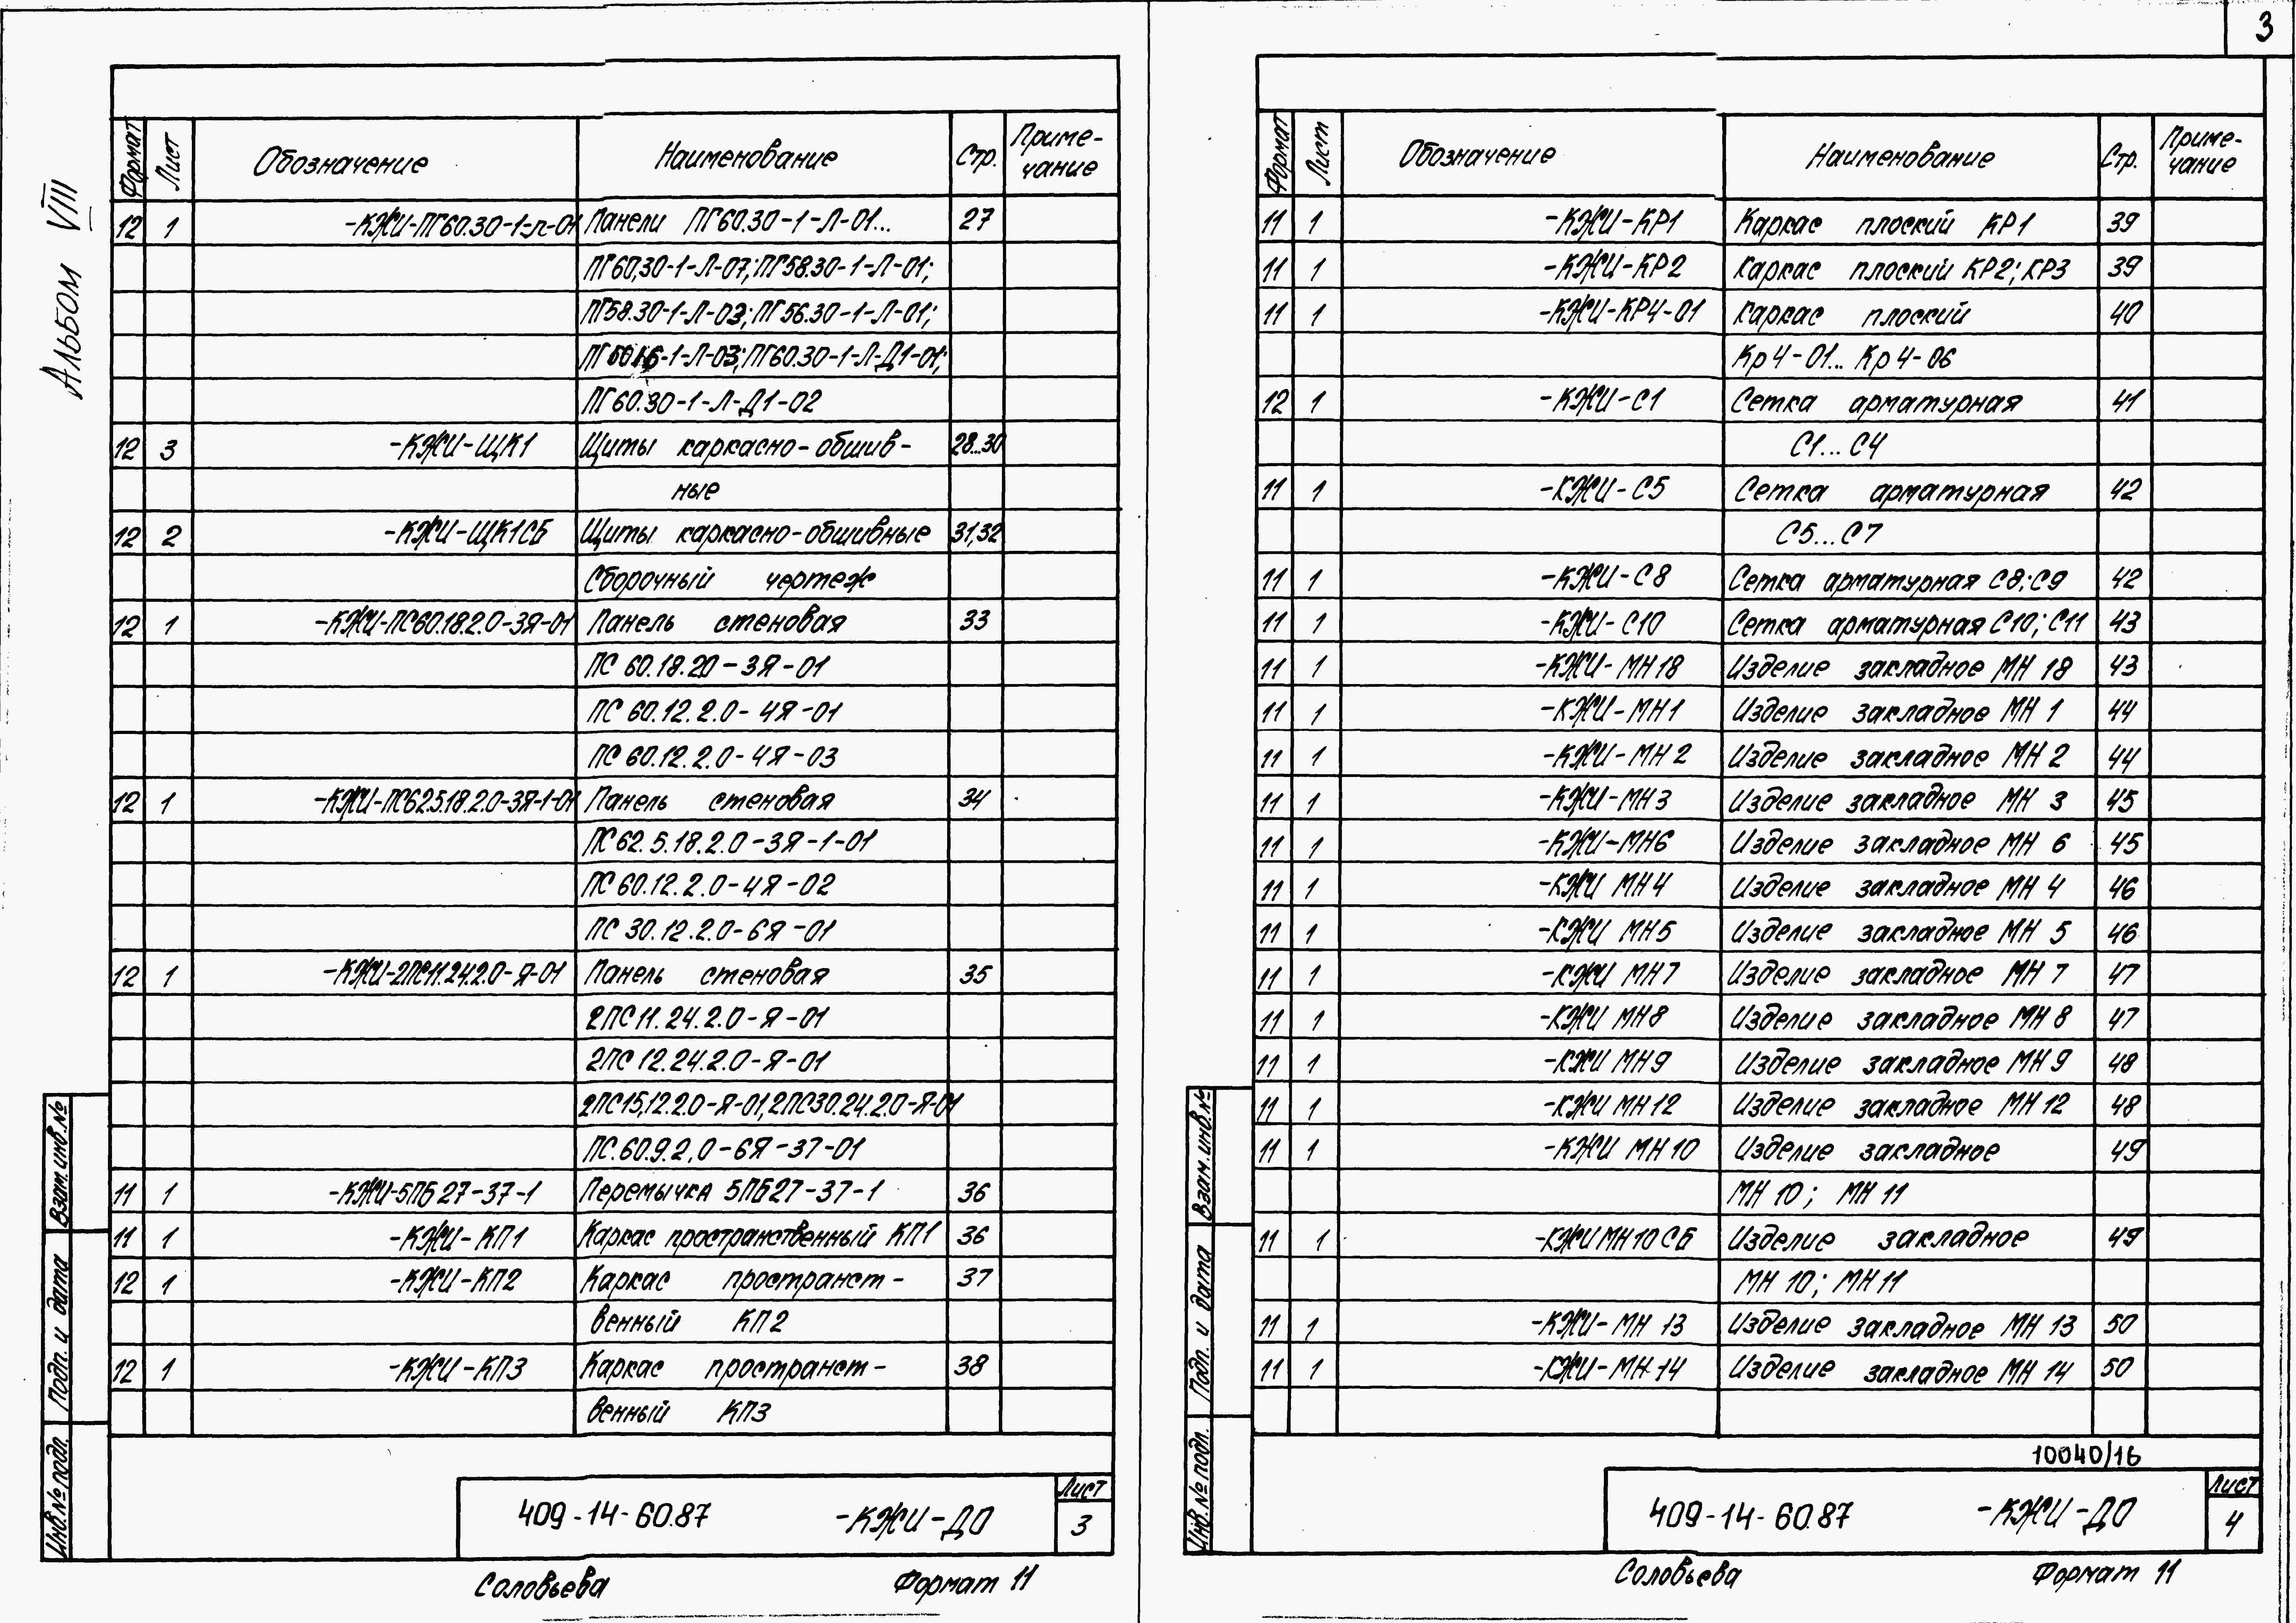 3
Альбом VIII
Формат Лист Обозначение Наименование Стр. Приме-
чание
12 1 -КЖИ-ПГ60.30-1-Л-01 Панели ПГ60.30-1-Л-01... 27
ПГ60,30-1-Л-07; ПГ58.30-1-Л-01;
ПГ58.30-1-Л-03; ПГ56.30-1-Л-01;
-1-Л-03; ПГ60.30-1-Л-Д1-01;
ПГ60.30-1-Л-Д1-02
12 3 -КЖИ-ЩК1 Щиты каркасно-обшив- 28...30
ные
12 2 -КЖИ-ЩК1СБ Щиты каркасно-обшивные 31,32
Сборочный чертеж
12 1 -КЖИ-ПС60.18.2.0-3Я-01 Панель стеновая 33
ПС 60.18.20-3Я-01
ПС 60.12.2.0-4Я-01
ПС 60.12.2.0-4Я-03
12 1 -КЖИ-ПС62.5.18.2.0-3Я-1-01 Панель стеновая 34
ПС 62.5.18.2.0-3Я-1-01
ПС 60.12.2.0-4Я-02
ПС 30.12.2.0-6Я-01
12 1 -КЖИ-2ПС11.24.2.0-Я-01 Панель стеновая 35
2ПС11.24.2.0-Я-01
2ПС12.24.2.0-Я-01
2ПС15,12.2.0-Я-01, 2ПС30.24.2.0-Я-01
ПС.60.9.2,0-6Я-37-01
11 1 -КЖИ-5ПБ27-37-1 Перемычка 5ПБ27-37-1 36
11 1 -КЖИ-КП1 Каркас пространственный КП1 36
12 1 -КЖИ-КП2 Каркас пространст- 37
венный КП2
12 1 -КЖИ-КП3 Каркас пространст- 38
венный КП3
Взам. инв. №
Подп. и дата
Инв. № подл.
409-14-60.87 -КЖИ-ДО Лист
3
Соловьева Формат 11
Формат Лист Обозначение Наименование Стр. Приме-
чание
11 1 -КЖИ-КР1 Каркас плоский КР1 39
11 1 -КЖИ-КР2 Каркас плоский КР2; КР3 39
11 1 -КЖИ-КР4-01 Каркас плоский 40
Кр4-01... Кр4-06
12 1 -КЖИ-С1 Сетка арматурная 41
С1...С4
11 1 -КЖИ-С5 Сетка арматурная 42
С5...С7
11 1 -КЖИ-С8 Сетка арматурная С8; С9 42
11 1 -КЖИ-С10 Сетка арматурная С10; С11 43
11 1 -КЖИ-МН18 Изделие закладное МН 18 43
11 1 -КЖИ-МН1 Изделие закладное МН 1 44
11 1 -КЖИ-МН2 Изделие закладное МН 2 44
11 1 -КЖИ-МН3 Изделие закладное МН 3 45
11 1 -КЖИ-МН6 Изделие закладное МН 6 45
11 1 -КЖИ МН4 Изделие закладное МН 4 46
11 1 -КЖИ МН5 Изделие закладное МН 5 46
11 1 -КЖИ МН7 Изделие закладное МН 7 47
11 1 -КЖИ МН8 Изделие закладное МН 8 47
11 1 -КЖИ МН9 Изделие закладное МН 9 48
11 1 -КЖИ МН12 Изделие закладное МН 12 48
11 1 -КЖИ МН10 Изделие закладное 49
МН 10; МН 11
11 1 -КЖИ МН10 СБ Изделие закладное 49
МН 10; МН 11
11 1 -КЖИ-МН 13 Изделие закладное МН 13 50
11 1 -КЖИ-МН-14 Изделие закладное МН 14 50
Взам. инв. №
Подп. и дата
Инв. № подл.
10040/16
409-14-60.87 -КЖИ-ДО Лист
4
Соловьева Формат 11